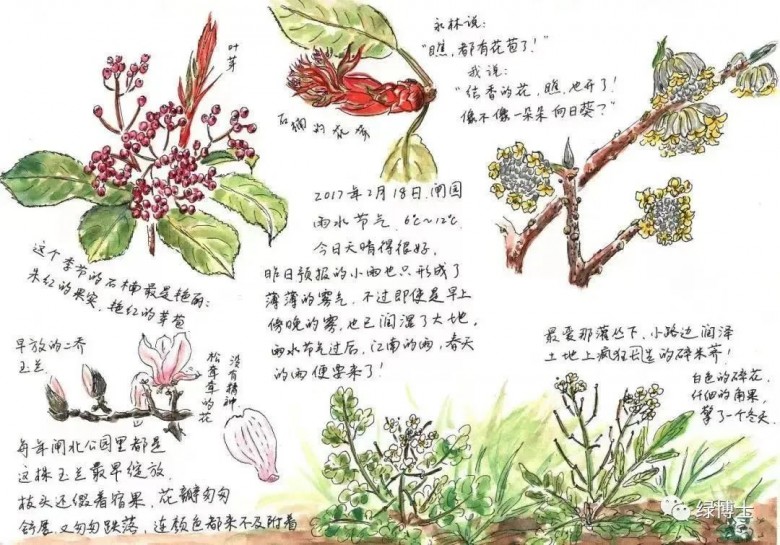 叶芽
石楠的花序
永林说：
"瞧，都有花苞了！"
我说：
"结香的花，瞧，也开了！
像不像一朵朵向日葵？"
2017年2月18日．闸园
雨水节气．6℃~12℃．
今日天晴得很好，
昨日预报的小雨也只形成了
薄薄的雾气．不过即使是早上
傍晚的雾，也已润湿了大地，
雨水节气过后，江南的雨，春天
的雨便要来了！
这个季节的石楠最是艳丽：
朱红的果实，艳红的苞
早放的二乔
玉兰
没有精神
松耷耷的花
每年闸北公园里都是
这株玉兰最早绽放，
枝头还假着宿果，花瓣匆匆
舒展，又匆匆跌落，连颜色都来不及附着
最爱那灌丛下，小路边润泽
土地上疯狂闷造的碎米荠！
白色的碎花，
纤细的角果，
擎了一个冬天．
绿博士